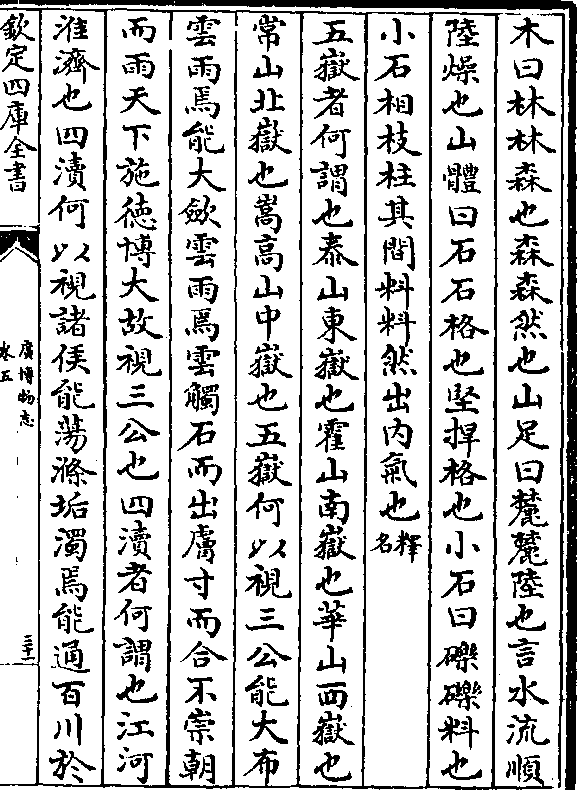 木曰林林森也森森然也山足曰麓麓陸也言水流順
陸燥也山體曰石石格也堅捍格也小石曰礫礫料也
小石相枝柱其間料料然出内氣也釋名
五嶽者何謂也泰山東嶽也霍山南嶽也華山西嶽也
常山北嶽也嵩髙山中嶽也五嶽何以視三公能大布
雲雨焉能大歛雲雨焉雲觸石而出膚寸而合不崇朝
而雨天下施徳博大故視三公也四瀆者何謂也江河
淮濟也四瀆何以視諸侯能蕩滌垢濁焉能通百川於
欽定四庫全書
廣博物志
卷五
三十一